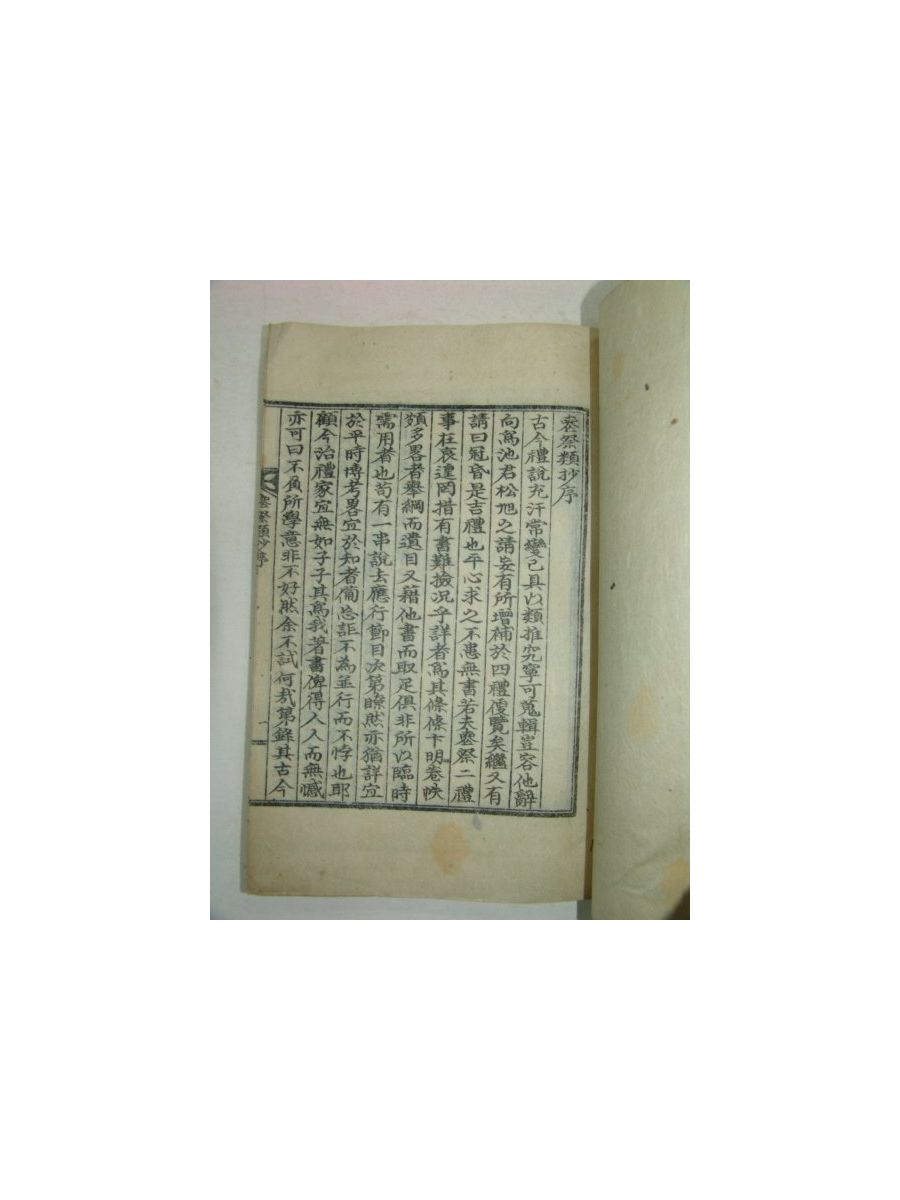 喪祭類抄序
古今禮說充汗常變已具以類推究寧可蒐輯豈容他辭
向爲池君松旭之請妄有所增補於四禮便覽矣繼又有
請曰冠昏是吉禮也平心求之不患無書若夫喪祭二禮
事在哀遑罔措有書難撿况乎詳者爲其條條卞明卷帙
頗多畧者舉綱而遺目又藉他書而取足俱非所以臨時
需用者也苟有一串說去應行節目次第瞭然亦猶詳宜
於平時博考畧宜於知者備忘詎不為並行而不悖也耶
顧今治禮家宜無如子子其爲我著書俾得人人而無憾
亦可曰不負所學意非不好然余不試何哉第錄其古今
喪祭類抄序
一